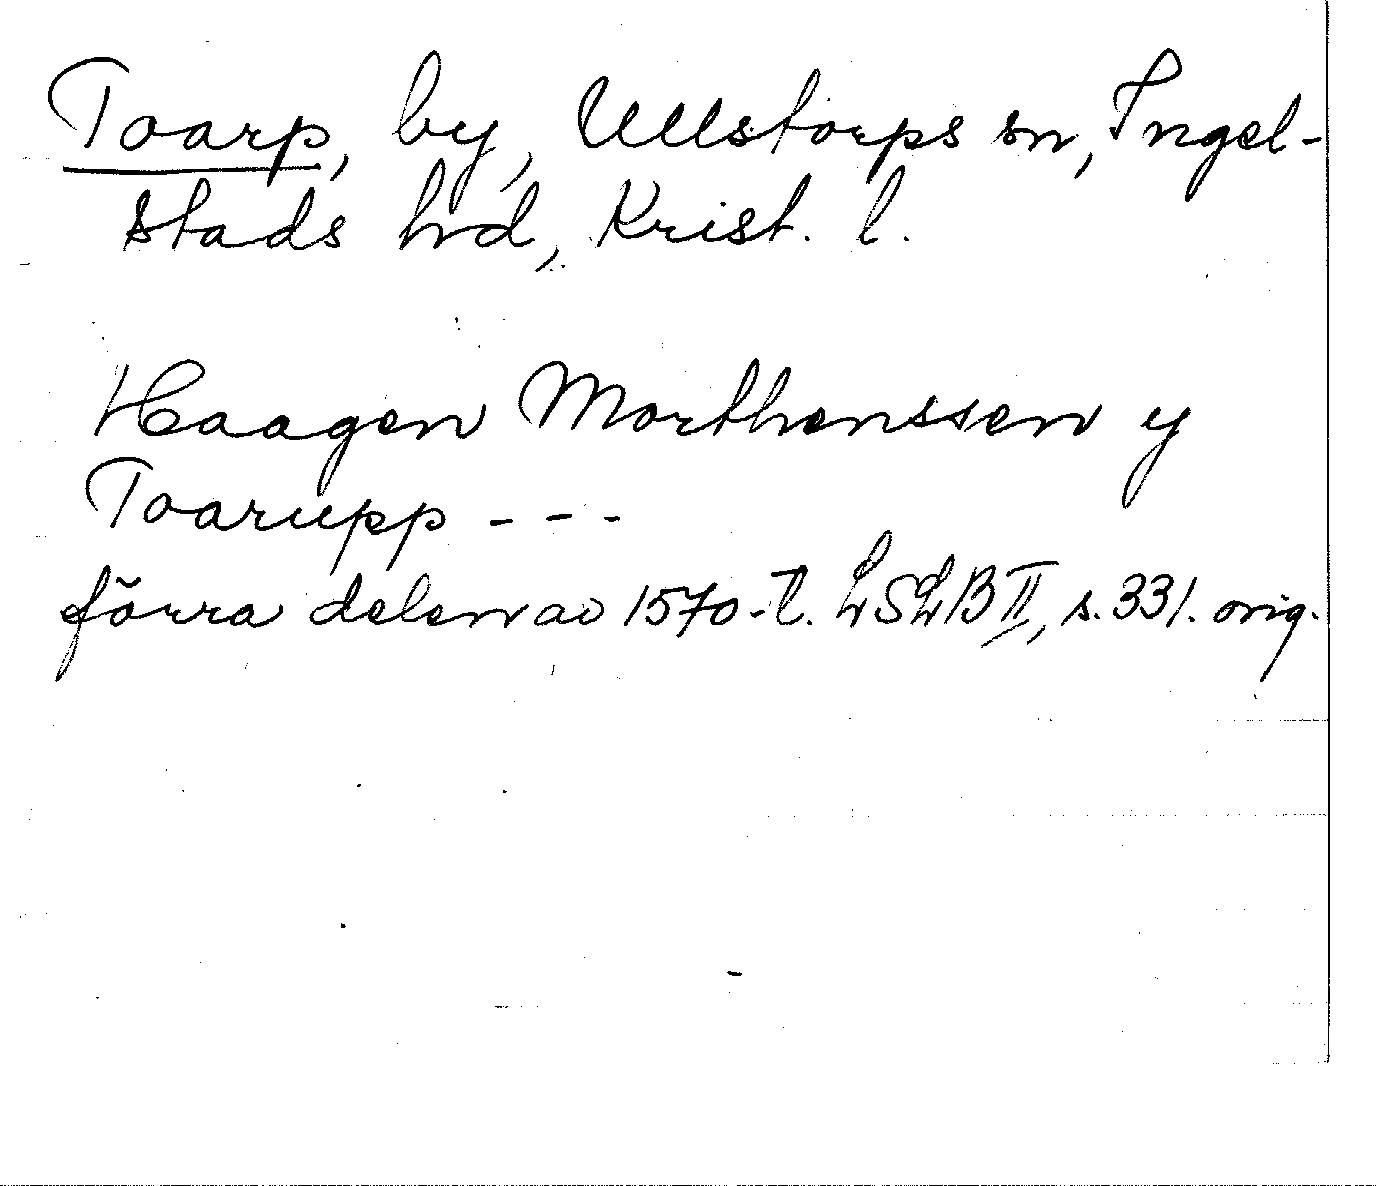 Toarp, by, Ullstorps sn, Ingel-
stads hd, Krist. l.
Haagen Morthenssen y
Toarupp - - -
förra delen av 1570-t. LSLB II, s. 331. orig.